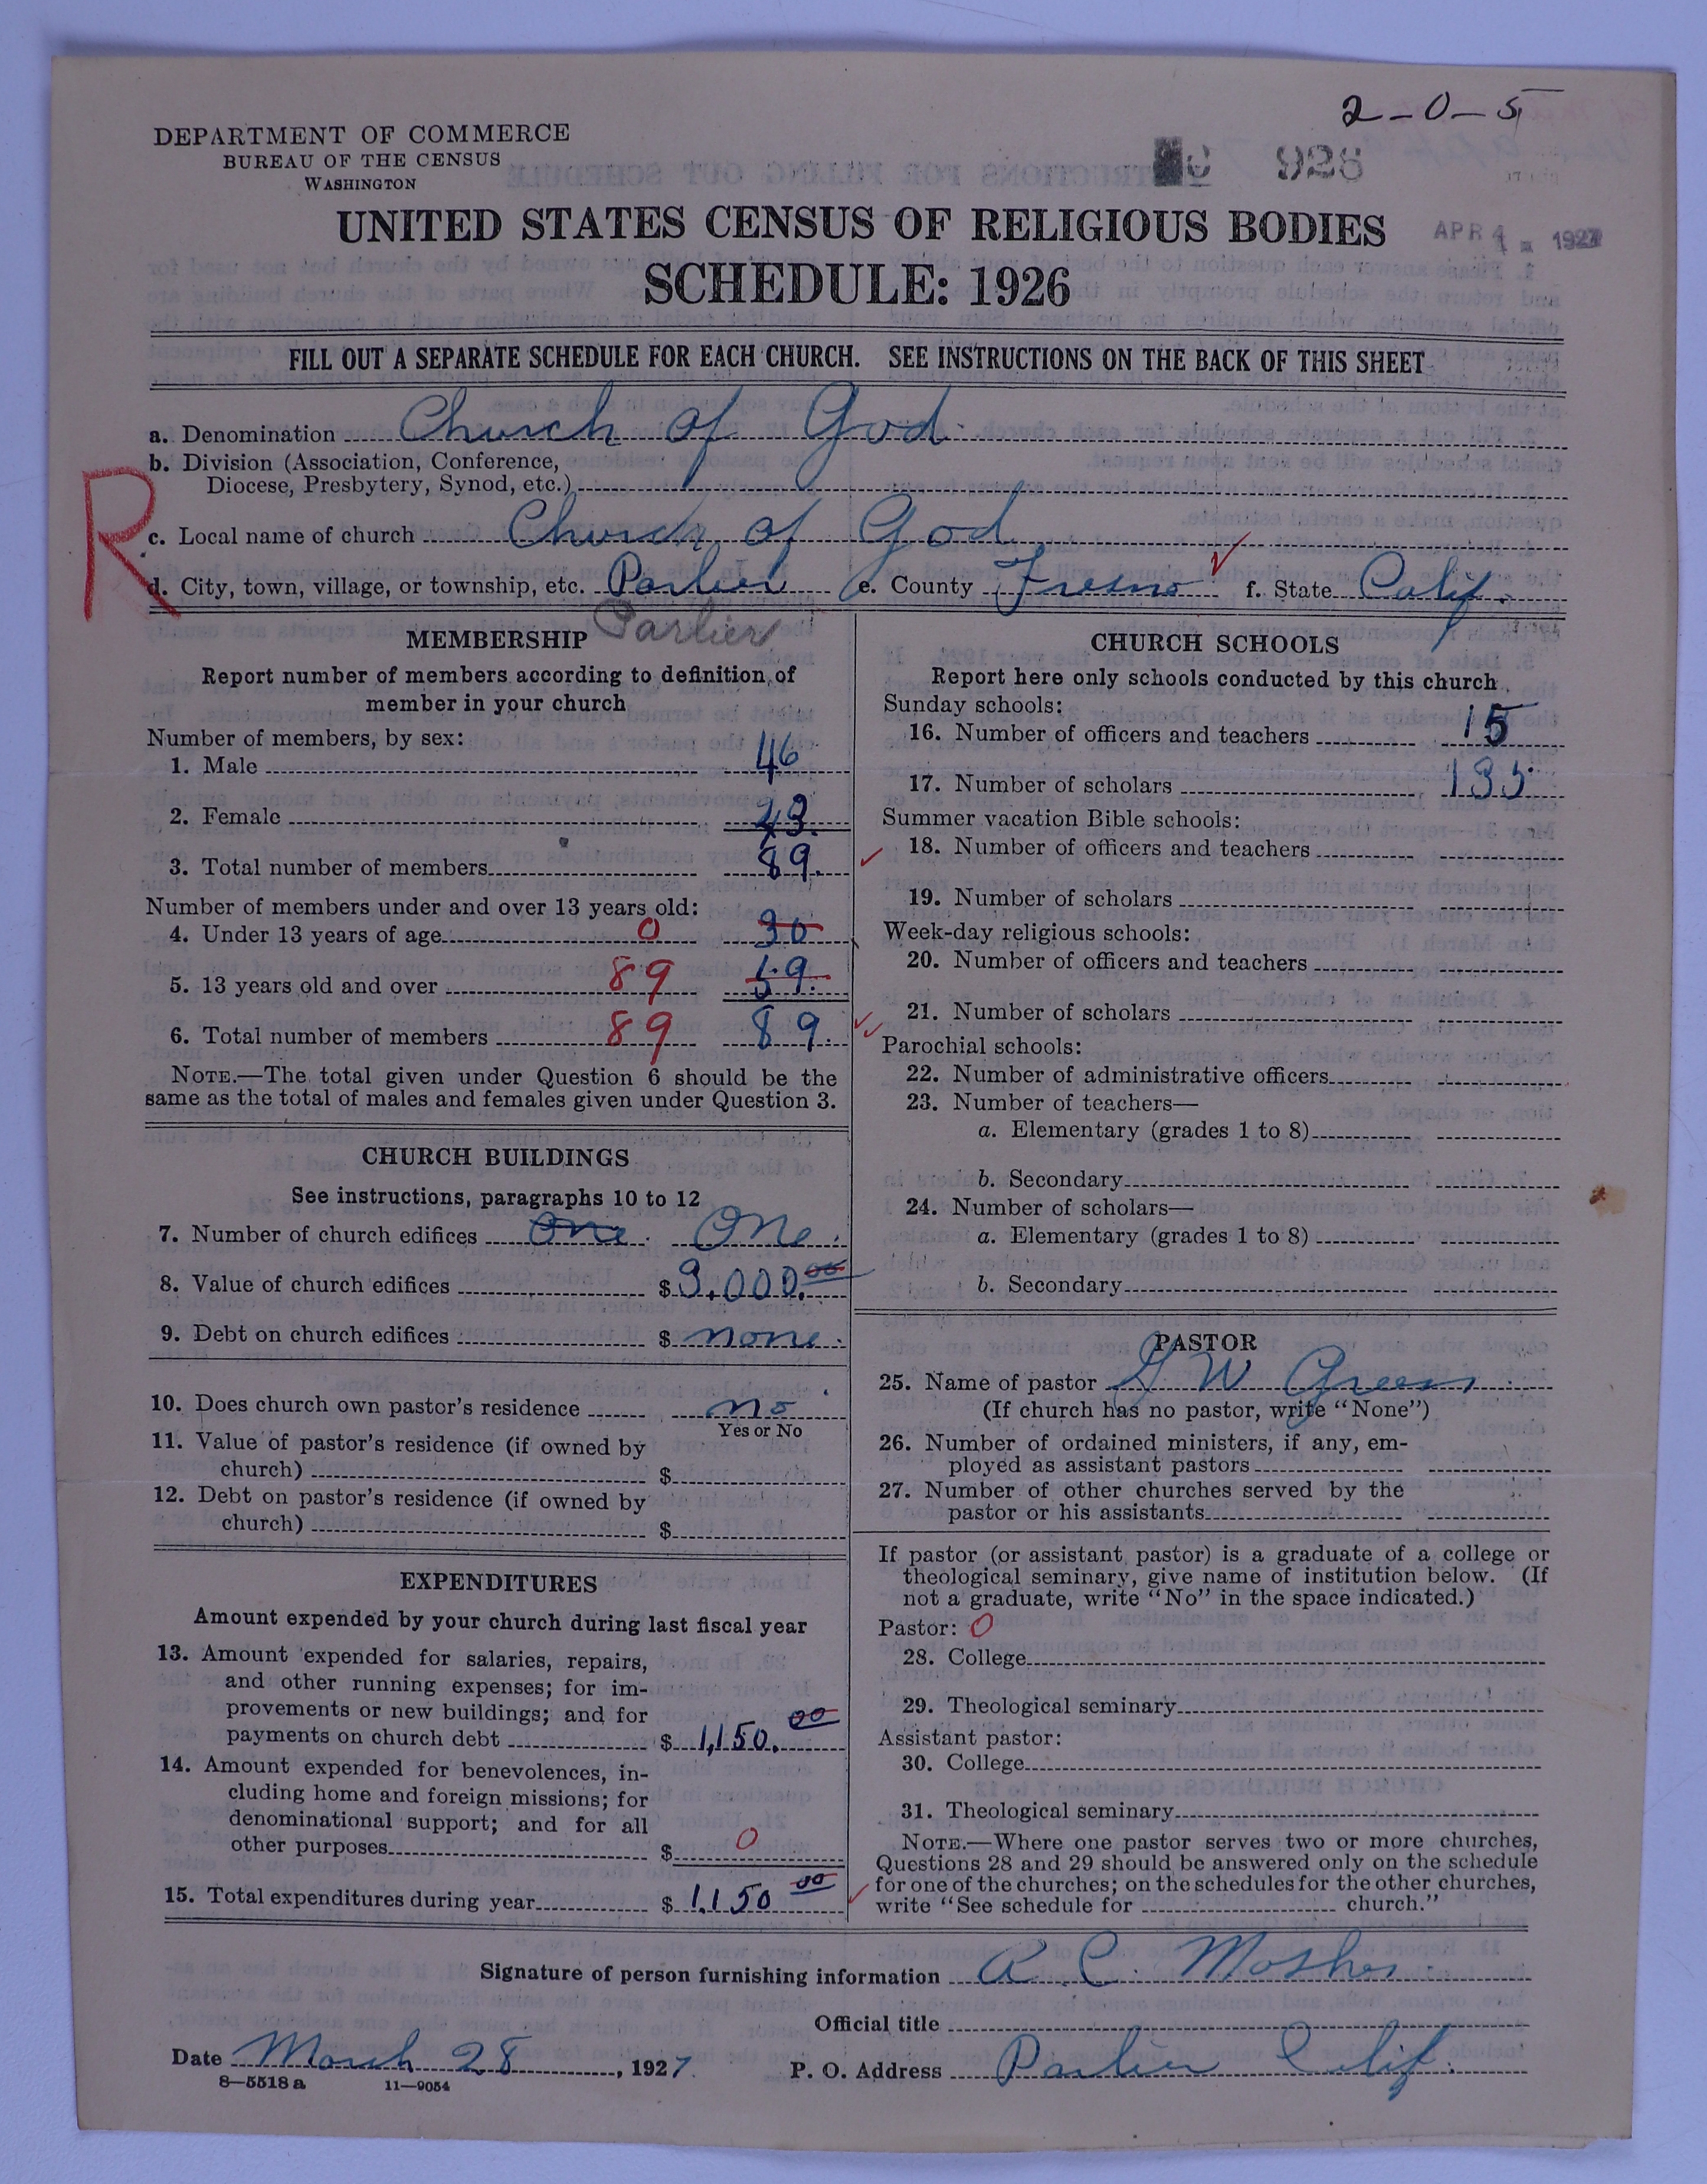 2-0-5
DEPARTMENT OF COMMERCE
BUREAU OF THE CENSUS
WASHINGTON
928
UNITED STATES CENSUS OF RELIGIOUS BODIES
APR 1927
SCHEDULE: 1926
FILL OUT A SEPARATE SCHEDULE FOR EACH CHURCH. SEE INSTRUCTIONS ON THE BACK OF THIS SHEET
R
a. Denomination Church of God
b. Division (Association, Conference,
Diocese, Presbytery, Synod, etc.)
c. Local name of church Church of God
d. City, town, village, or township, etc. Parlier e. County Fresno f. State Calif.
Parlier
MEMBERSHIP
Report number of members according to definition of
member in your church
Number of members, by sex:
1. Male 46
2. Female 43.
3. Total number of members 89.
Number of members under and over 13 years old:
4. Under 13 years of age 0 30
5. 13 years old and over 89 59.
6. Total number of members 89 89.
NOTE.—The total given under Question 6 should be the
same as the total of males and females given under Question 3.
CHURCH BUILDINGS
See instructions, paragraphs 10 to 12
7. Number of church edifices One. One.
8. Value of church edifices $ 9.000.00
9. Debt on church edifices $ none.
10. Does church own pastor's residence no
Yes or No
11. Value of pastor's residence (if owned by
church) $
12. Debt on pastor's residence (if owned by
church) $
EXPENDITURES
Amount expended by your church during last fiscal year
13. Amount expended for salaries, repairs,
and other running expenses; for im-
provements or new buildings; and for
payments on church debt $ 1,150.00
14. Amount expended for benevolences, in-
cluding home and foreign missions; for
denominational support; and for all
other purposes $ 0
15. Total expenditures during year $ 1,150 00
CHURCH SCHOOLS
Report here only schools conducted by this church
Sunday schools:
16. Number of officers and teachers 15
17. Number of scholars 135
Summer vacation Bible schools:
18. Number of officers and teachers
19. Number of scholars
Week-day religious schools:
20. Number of officers and teachers
21. Number of scholars
Parochial schools:
22. Number of administrative officers
23. Number of teachers—
a. Elementary (grades 1 to 8)
b. Secondary
24. Number of scholars—
a. Elementary (grades 1 to 8)
b. Secondary
PASTOR
25. Name of pastor G W Green
(If church has no pastor, write "None")
26. Number of ordained ministers, if any, em-
ployed as assistant pastors
27. Number of other churches served by the
pastor or his assistants
If pastor (or assistant pastor) is a graduate of a college or
theological seminary, give name of institution below. (If
not a graduate, write "No" in the space indicated.)
Pastor: 0
28. College
29. Theological seminary
Assistant pastor:
30. College
31. Theological seminary
NOTE.—Where one pastor serves two or more churches,
Questions 28 and 29 should be answered only on the schedule
for one of the churches; on the schedules for the other churches,
write "See schedule for church."
Signature of person furnishing information A C. Mosher.
Official title
Date March 28, 1927. P. O. Address Parlier Calif.
8—5518 a 11—9054